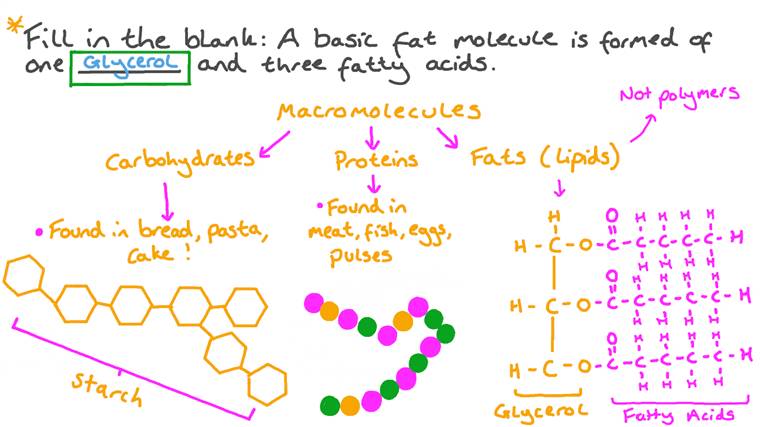 *Fill in the blank: A basic fat molecule is formed of
one Glycerol and three fatty acids.
Macromolecules
Not polymers
Carbohydrates
Proteins
Fats (Lipids)
• Found in bread, pasta,
cake!
• Found in
meat, fish, eggs,
pulses
Starch
H O H H H H
H - C - O - C - C - C - C - C - H
H H H H
O H H H H
H - C - O - C - C - C - C - C - H
H H H H
O H H H H
H - C - O - C - C - C - C - C - H
H H H H
Glycerol
Fatty Acids